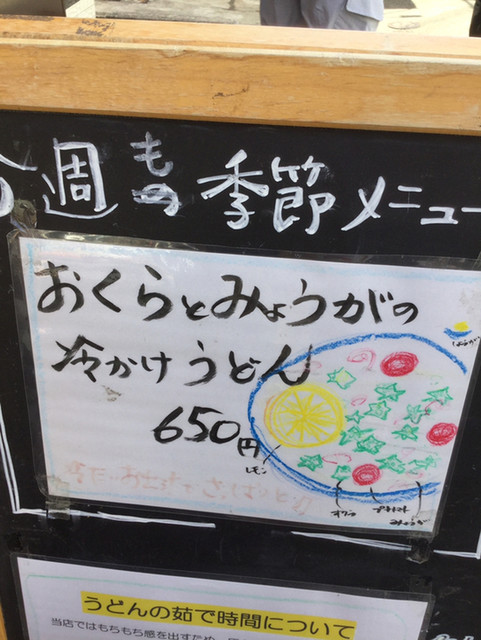 週も季節メニュー
おくらとみょうがの
冷かけうどん
650円
しょうが
レモン
オクラ
プチトマト
みょうが
うどんの茹で時間について
当店ではもちもち感を出すため